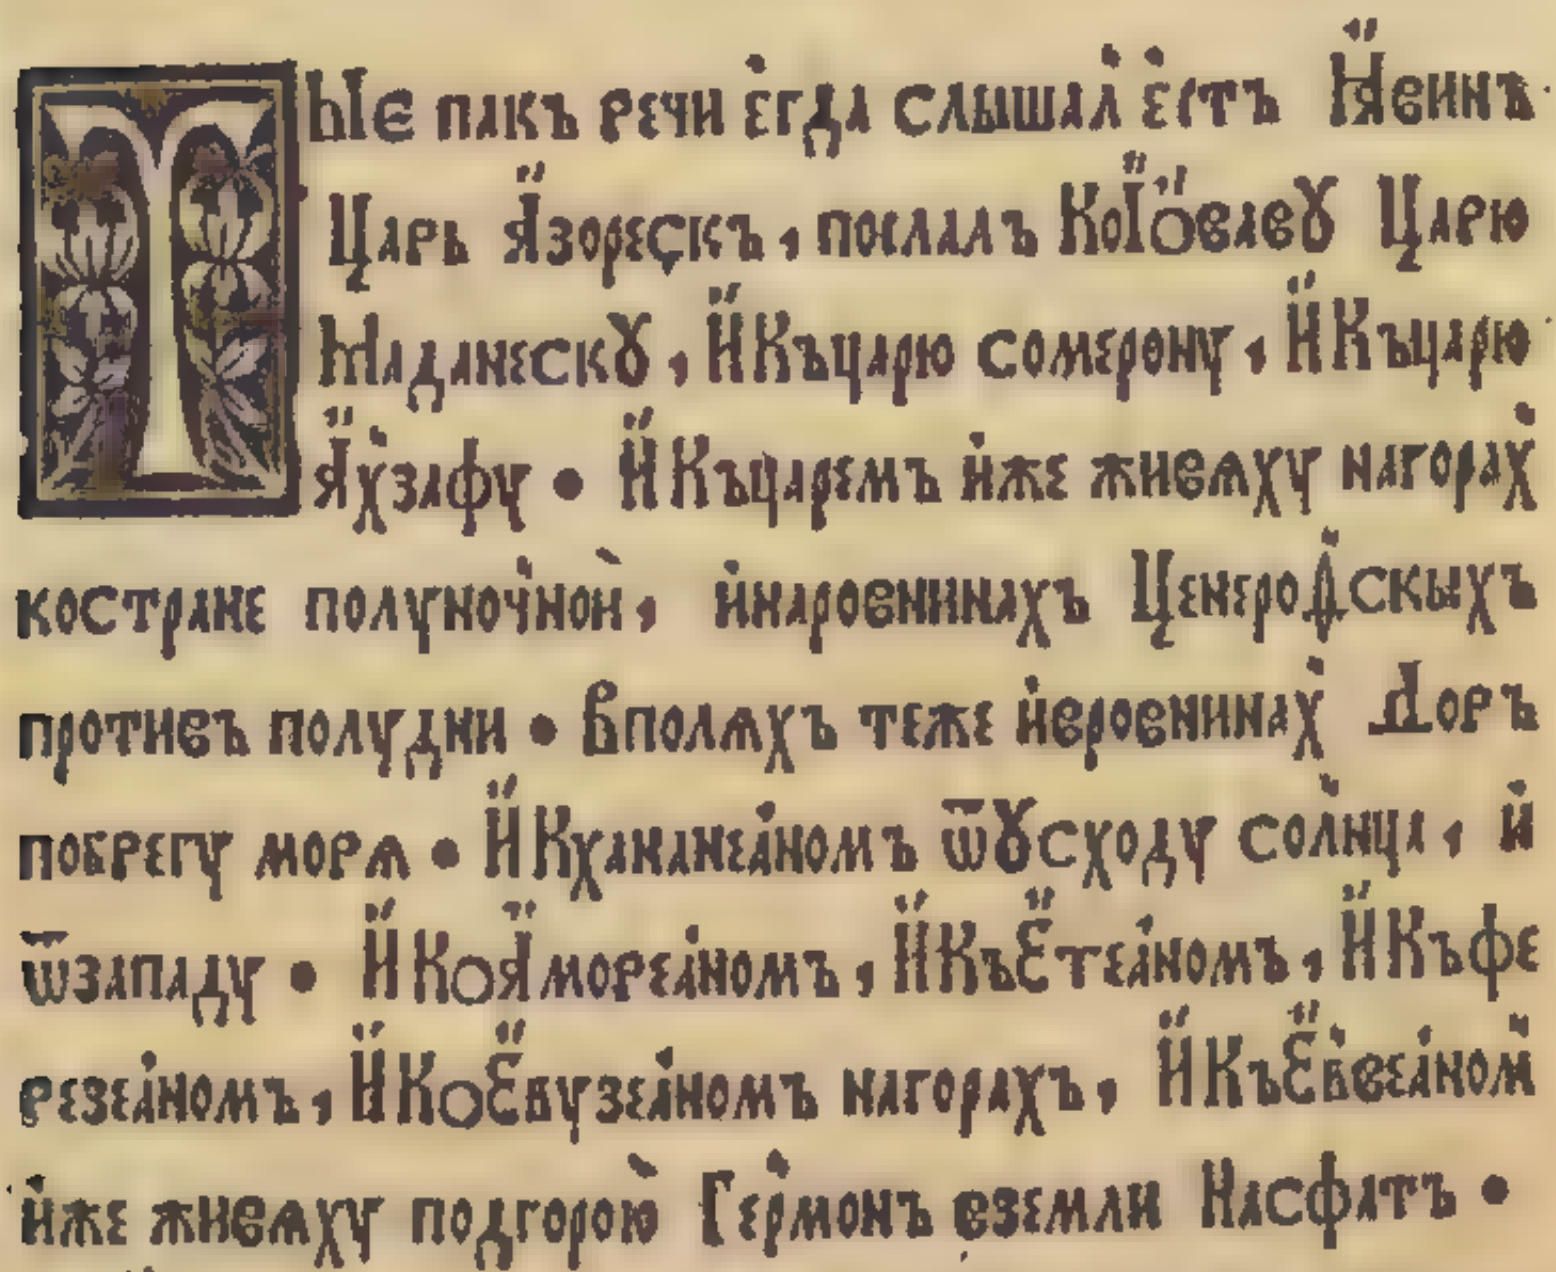 Тыє пакъ речи егда слышал естъ Ꙗвинъ
Царь Язорескъ, послалъ КоІоваву Царю
Маданескꙋ, И Къцарю сомерону, И Къцарю
Яхзафу • И Къцаремъ иже живѧху нагорах
костране полуночнои, инаровнинахъ Ценерофскыхъ
противъ полудни • Вполѧхъ теже иеровнинах Доръ
побрегу морѧ • И Кхананеаномъ ѿꙋсходу солнца, и
ѿзападу • И КоЯмореаномъ, И КъЕтеаномъ, И Къфе
резеаномъ, И КоЕвузеаномъ нагорахъ, И КъЕввеаном
иже живѧху подгорою Гермонъ вземли Насфатъ •